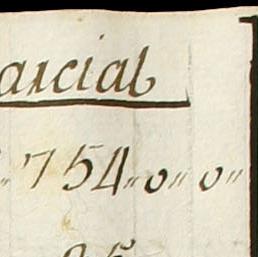 arcial
754〃0〃0〃